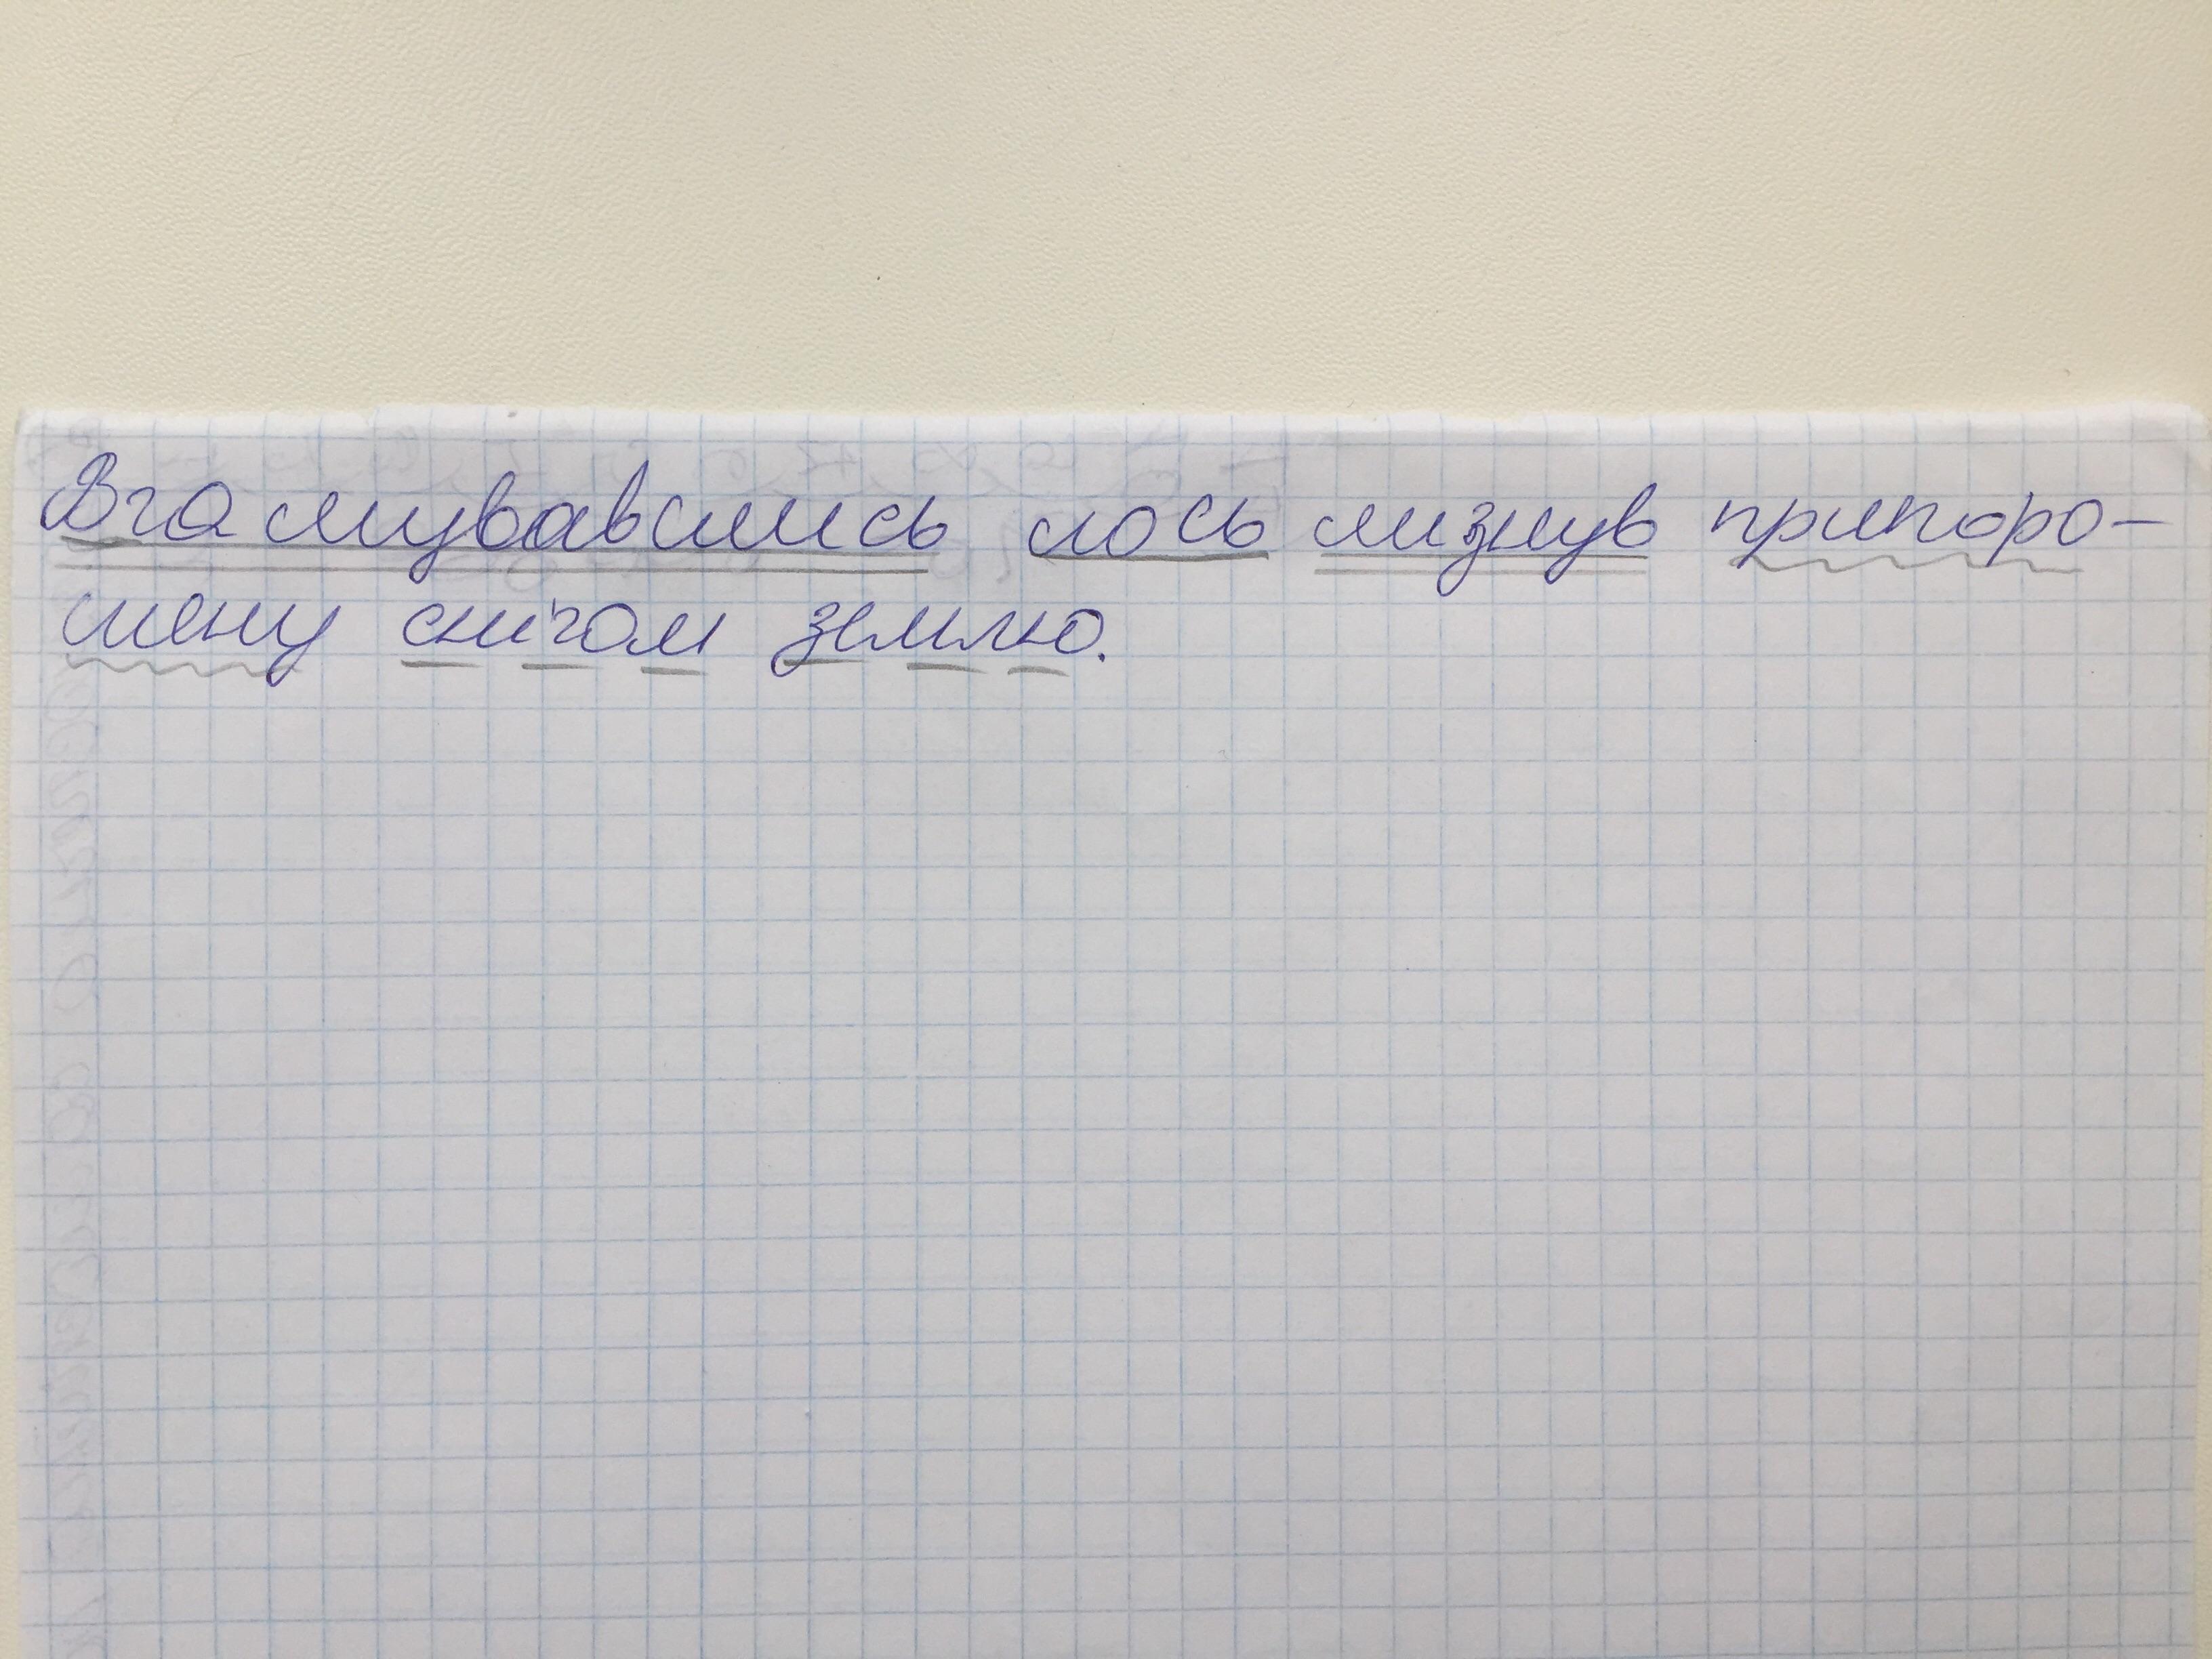 Вгамувавшись лось лизнув припоро-
шену снігом землю.